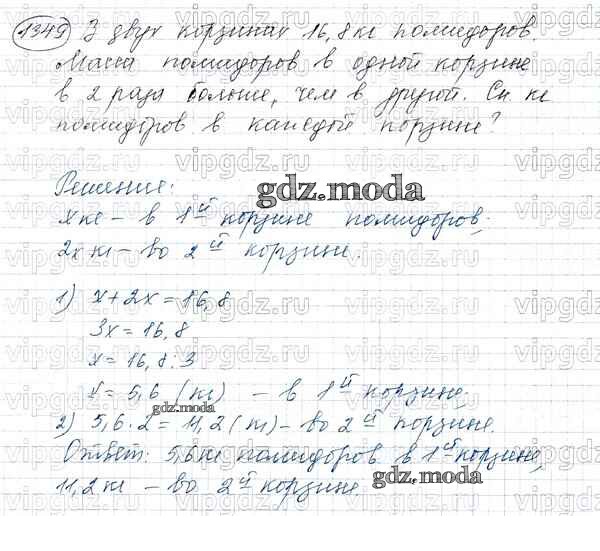 1349 З двух корзинах 16,8 кг помидоров.
Масса помидоров в одной корзине
в 2 раза больше, чем в другой. Ск. кг
помидоров в каждой корзине?
Решение:
gdz.moda
x кг – в 1ой корзине помидоров;
2x кг – во 2ой корзине.
1) x + 2x = 16,8
3x = 16,8
x = 16,8 : 3
x = 5,6 (кг) – в 1ой корзине,
gdz.moda
2) 5,6 · 2 = 11,2 (кг) – во 2ой корзине.
Ответ: 5,6 кг помидоров в 1ой корзине,
11,2 кг – во 2ой корзине.
gdz.moda
vipgdz.ru